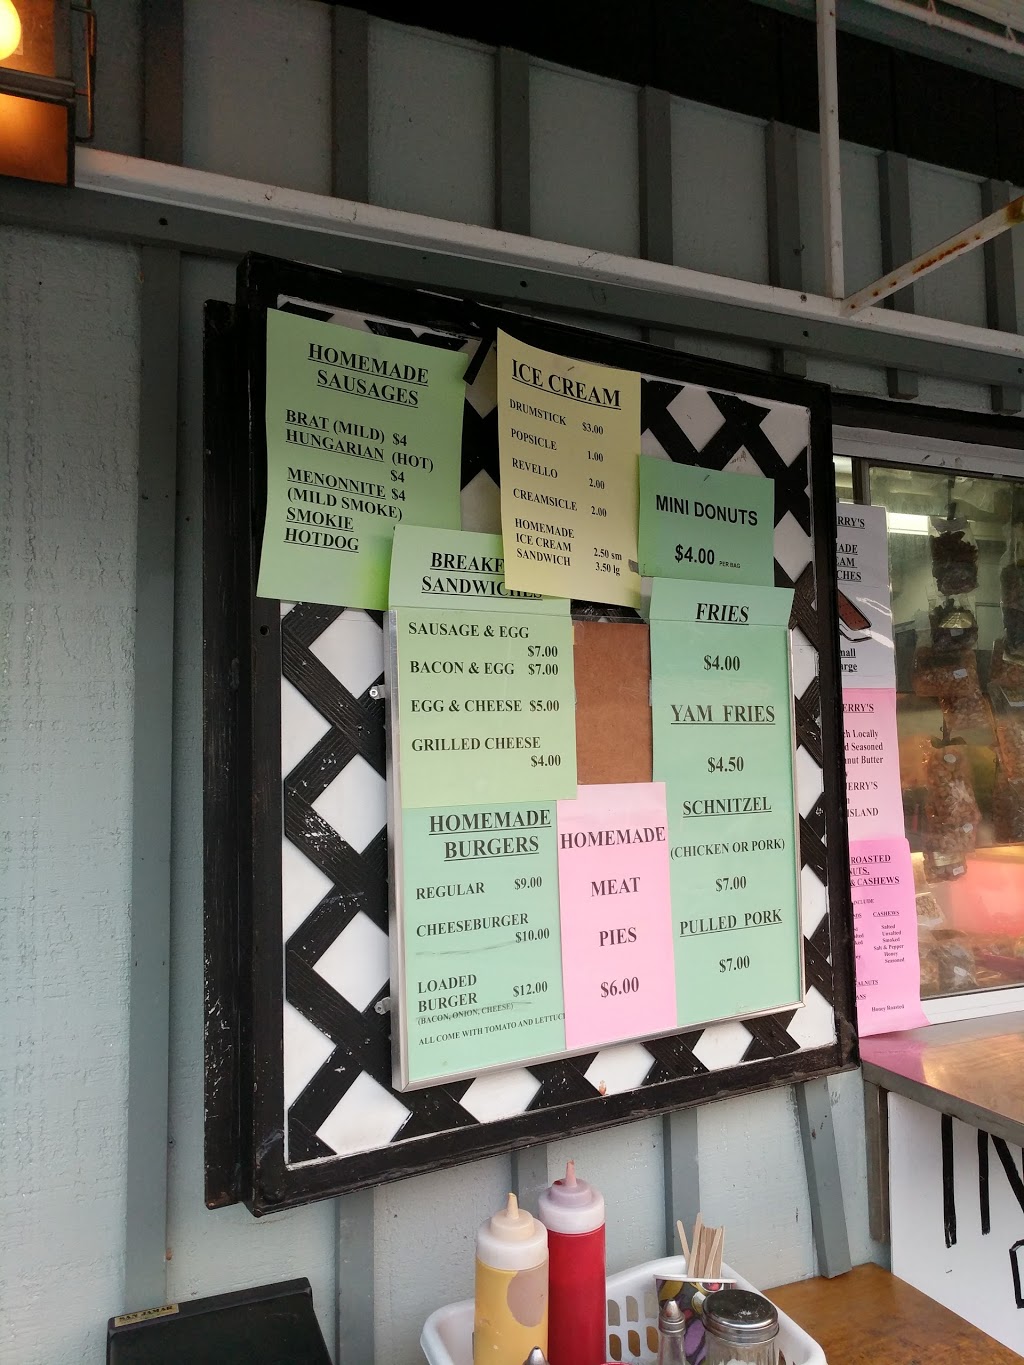 HOMEMADE
SAUSAGES
BRAT (MILD) $4
HUNGARIAN (HOT)
$4
MENONNITE $4
(MILD SMOKE)
SMOKIE
HOTDOG
ICE CREAM
DRUMSTICK $3.00
POPSICLE 1.00
REVELLO 2.00
CREAMSICLE 2.00
HOMEMADE
ICE CREAM 2.50 sm
SANDWICH 3.50 lg
MINI DONUTS
$4.00 PER BAG
BREAKF
SANDWICHES
SAUSAGE & EGG
$7.00
BACON & EGG $7.00
EGG & CHEESE $5.00
GRILLED CHEESE
$4.00
HOMEMADE
BURGERS
REGULAR $9.00
CHEESEBURGER
$10.00
LOADED
BURGER $12.00
(BACON, ONION, CHEESE)
ALL COME WITH TOMATO AND LETTUC
HOMEMADE
MEAT
PIES
$6.00
FRIES
$4.00
YAM FRIES
$4.50
SCHNITZEL
(CHICKEN OR PORK)
$7.00
PULLED PORK
$7.00
RRY'S
ADE
AM
CHES
mall
rge
ERRY'S
ch Locally
d Seasoned
nut Butter
ERRY'S
n
ISLAND
ROASTED
UTS,
& CASHEWS
NCLUDE
CASHEWS
Salted
Unsalted
Smoked
Salt & Pepper
Honey
Seasoned
ALNUTS
ANS
Honey Roasted
SAN JAMAR